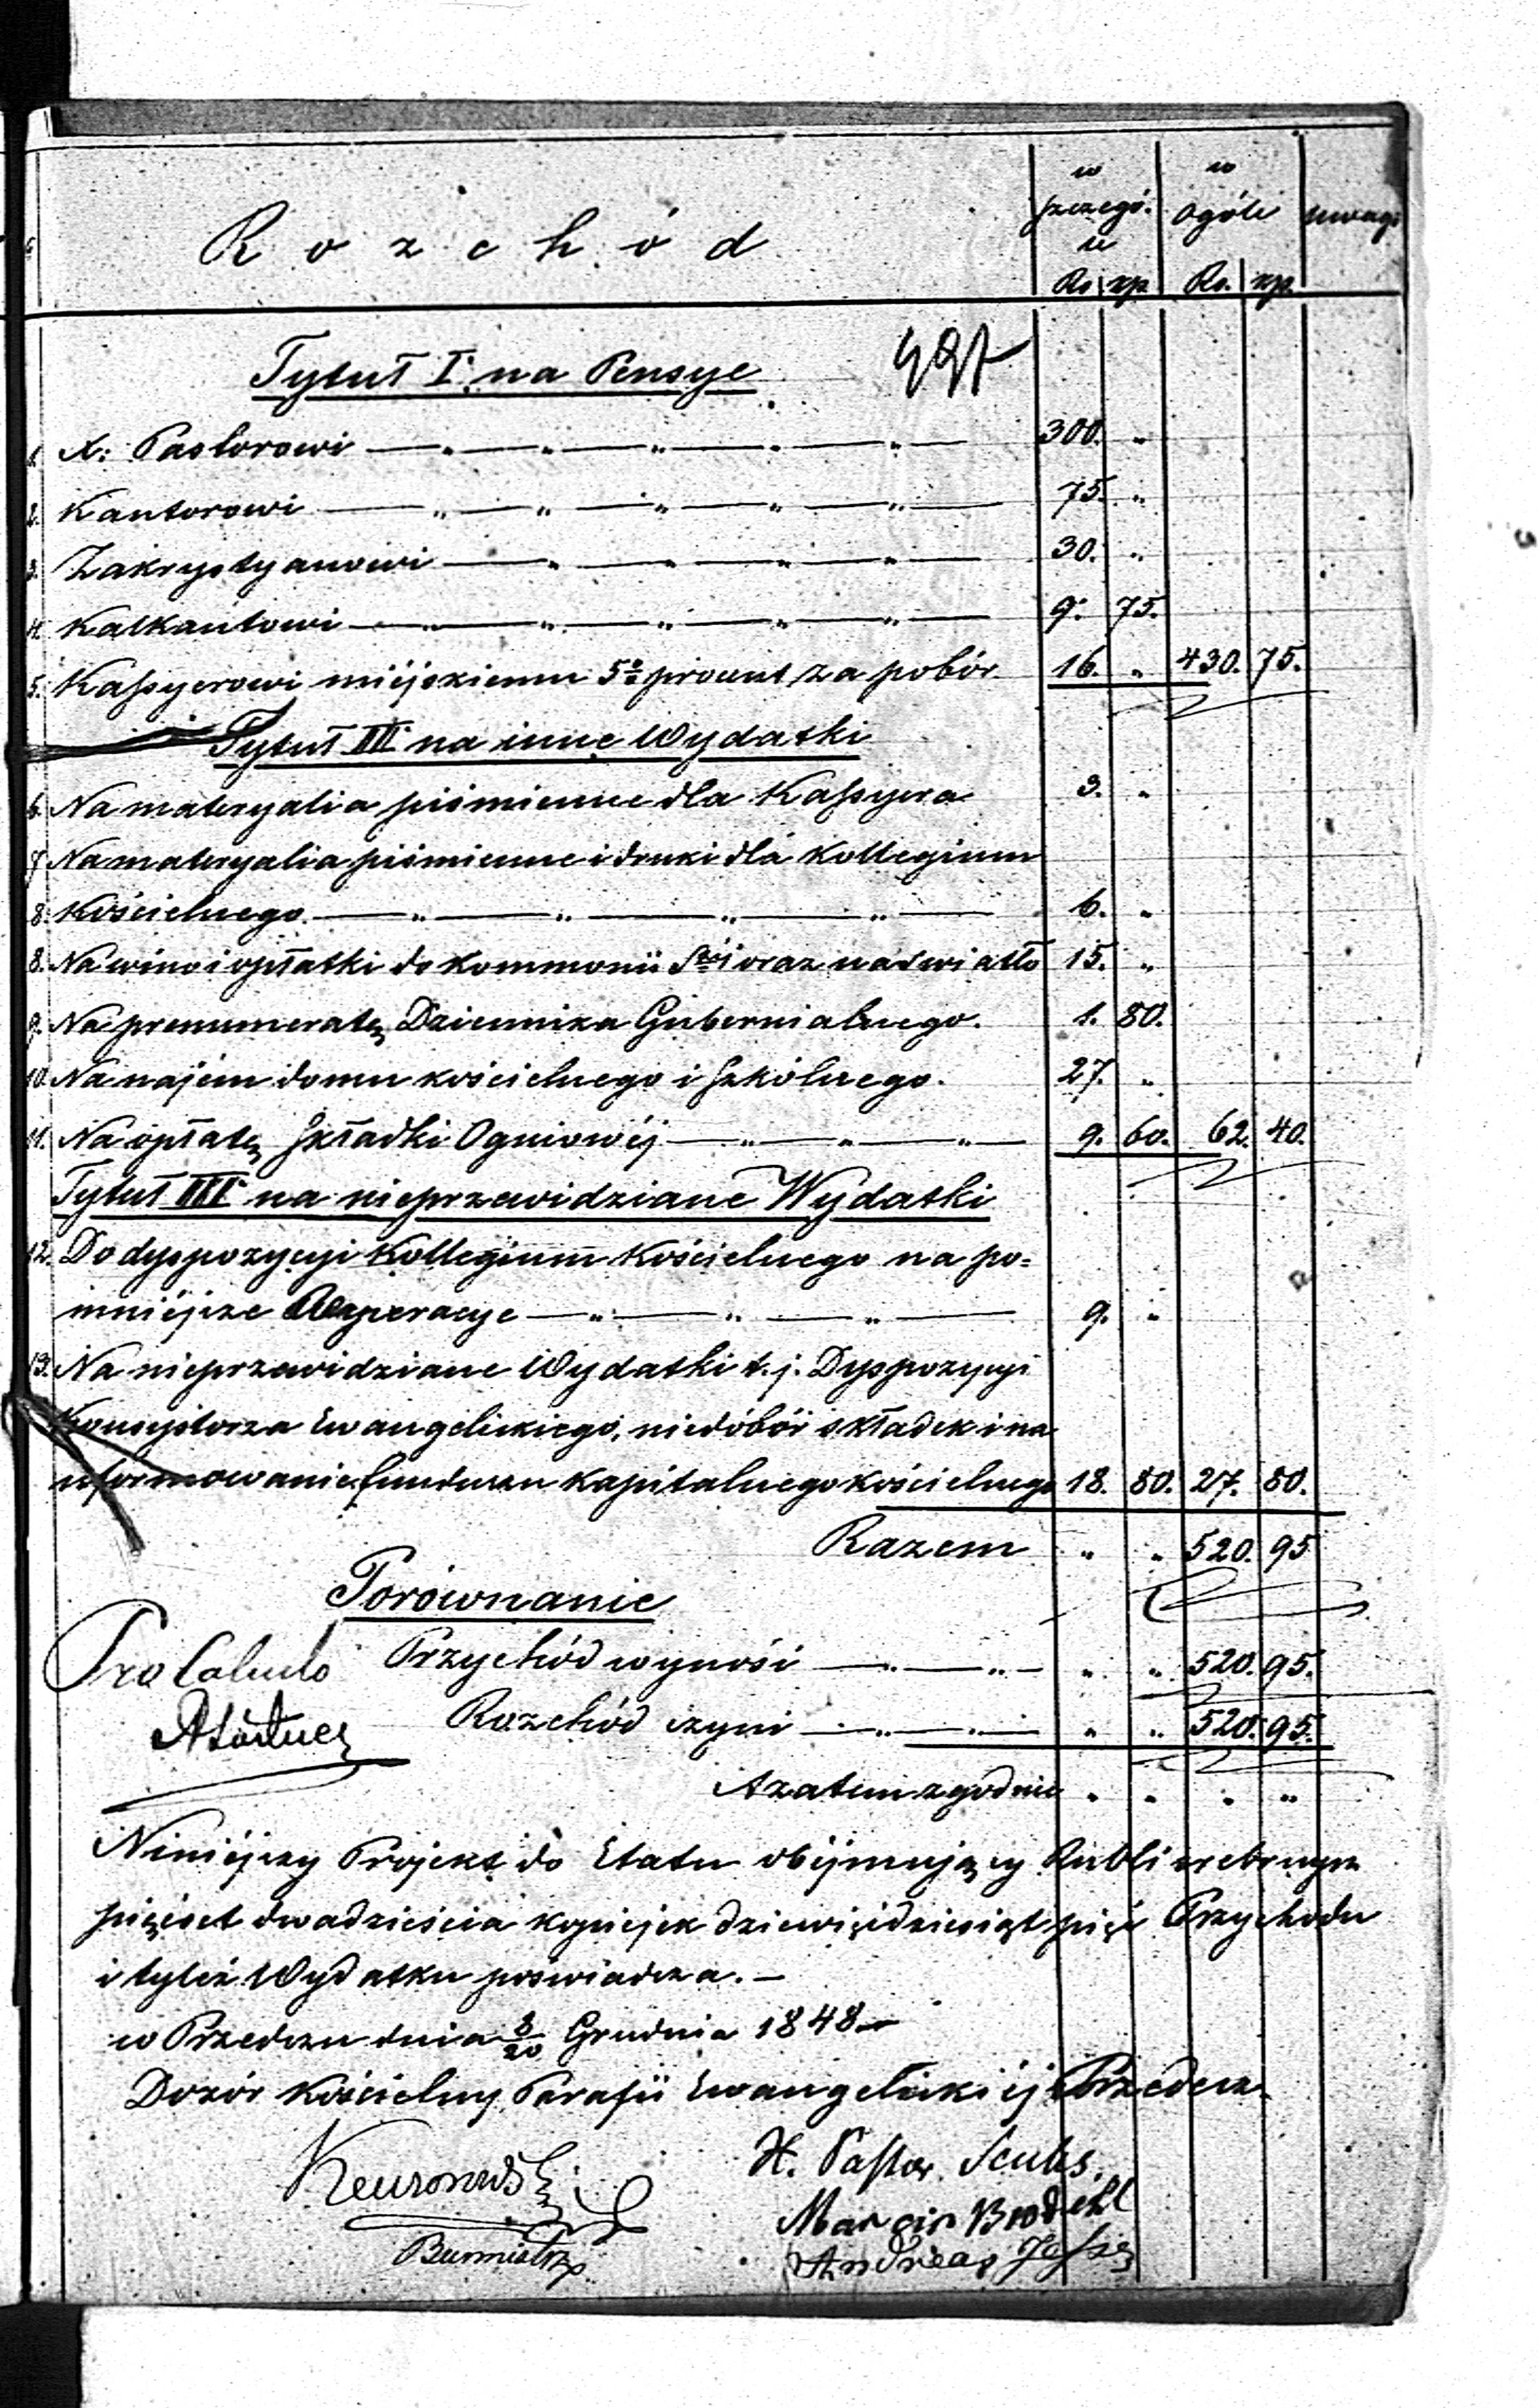 Rozchód
w szczegó. le
w ogóle
uwagi
Rs kp Rs. kp.
Tytuł I. na Pensye
1. X: Pastorowi — " — " — " — " — " — 300. "
2. Kantorowi — " — " — " — " — " — 75. "
3. Zakrystyanowi — " — " — " — " — 30. "
4. Kalkantowi — " — " — " — " — " — 9. 75.
5. Kassyerowi miéjskiemu 5% procent za pobór. 16. " 430. 75.
Tytuł III na inne Wydatki
6. Na materyalia piśmienne dla Kassyera 3. "
7. Na materyalia piśmienne i druki dla Kollegium
8. Kościelnego. — " — " — " — " — 6. "
8. Na wino i opłatki do Kommonii Stéj oraz na światło 15. "
9. Na prenumeratę Dziennika Gubernialnego. 1. 80.
10. Na najem domu kościelnego i szkólnego. 27. "
11. Na opłatę składki Ogniowéj — " — " — " — 9. 60. 62. 40.
Tytuł III na nieprzewidziane Wydatki
12. Do dyspozycyi Kollegium Kościelnego na po=
mniéjsze Reperacye — " — " — " — 9. "
13. Na nieprzewidziane Wydatki t. j. Dyspozycyi
Konsystorza Ewangelickiego, niedobór składek i na
uformowanie funduszu kapitalnego kościelnego 18. 80. 27. 80.
Razem " " 520. 95
Porównanie
Pro Calculo Przychód wynosi — " — " — " " 520. 95.
Rozchód czyni — " — " — " " 520. 95.
A zatem zgodnie " " " "
Niniéjszy Projekt do Etatu obéjmujący Rubli srebrnych
pięćset dwadzieścia kopiejek dziewięćdziesiąt pięć Przychodu
i tyleż Wydatku poświadcza. —
w Przedczu dnia 8/20 Grudnia 1848 —
Dozór Kościelny Parafii Ewangelickiéj Przedecz
Burmistrz
X. Pastor
Marcin Brodehl
Andreas